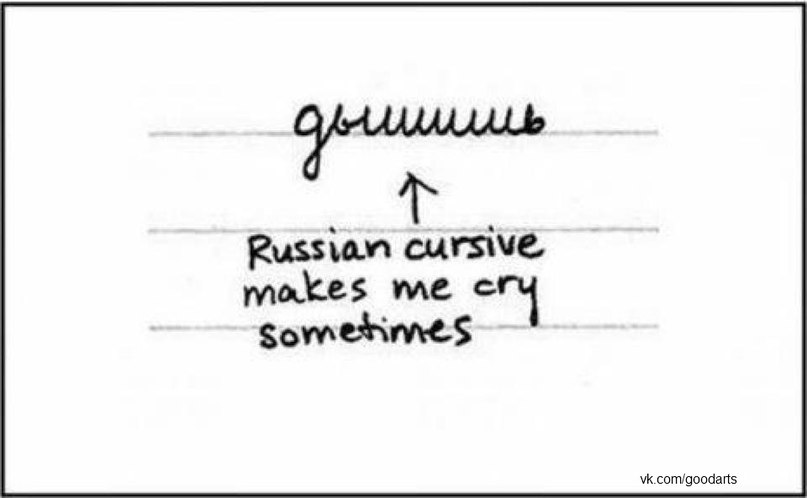 дышишь
↑
Russian cursive
makes me cry
sometimes
vk.com/goodarts